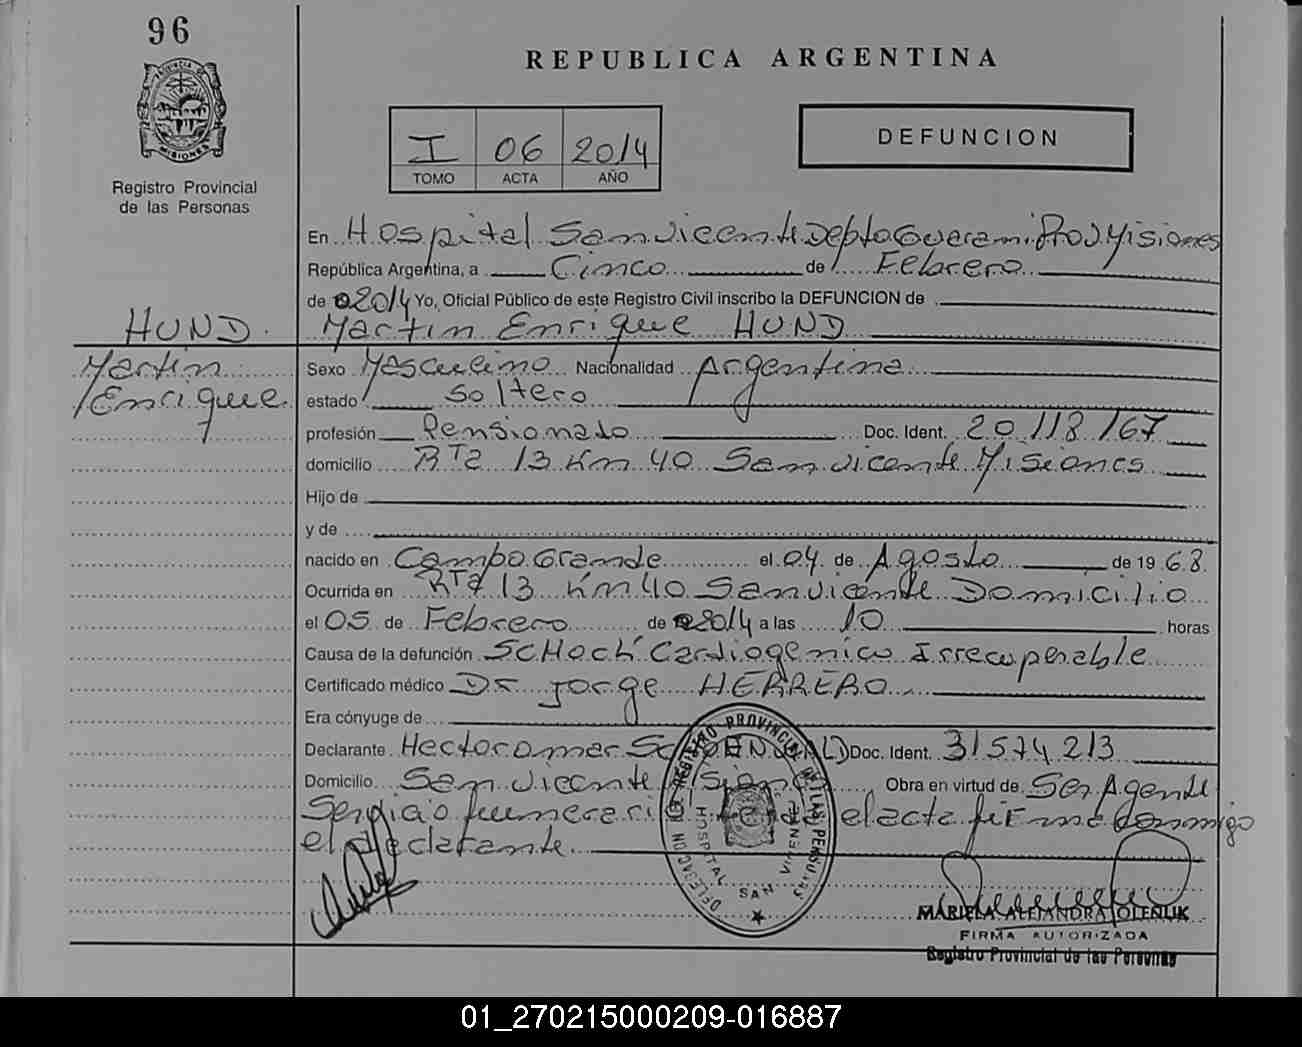 96
REPUBLICA ARGENTINA
PROVINCIA DE
MISIONES
Registro Provincial
de las Personas
I 06 2014
TOMO ACTA AÑO
DEFUNCION
En Hospital San Vicente Depto Guarami Prov. Misiones
República Argentina, a Cinco de Febrero
de 2014 Yo, Oficial Público de este Registro Civil inscribo la DEFUNCION de
HUND. Martin Enrique HUND
Martin Sexo Masculino Nacionalidad Argentina
Enrique estado Soltero
profesión Pensionado Doc. Ident. 20.118.167
domicilio RTa 13 Km 40 San Vicente Misiones
Hijo de
y de
nacido en Campo Grande el 04 de Agosto de 1968
Ocurrida en RTa 13 Km 40 San Vicente Domicilio
el 05 de Febrero de 2014 a las 10 horas
Causa de la defunción SCHock Cardiogenico Irrecuperable
Certificado médico Dr Jorge HERRERO
Era cónyuge de
Declarante Hector Omar Doc. Ident. 31574213
Domicilio San Vicente Misiones Obra en virtud de Ser Agente
Servicio funerario el acta firma conmigo
el declarante
DELEGACION REGISTRO PROVINCIAL DE LAS PERSONAS
HOSPITAL SAN VICENTE
MARIELA ALEJANDRA OLENUK
FIRMA AUTORIZADA
Registro Provincial de las Personas
01_270215000209-016887